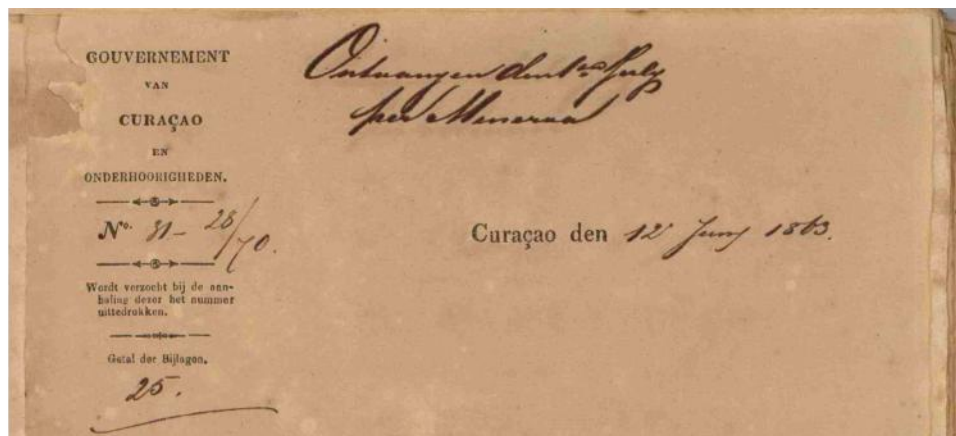 GOUVERNEMENT
VAN
CURAÇAO
EN
ONDERHOORIGHEDEN.
No. 31- 28/70.
Wordt verzocht bij de aan-
haling dezer het nummer
uittedrukken.
Getal der Bijlagen.
25.
Ontvangen den 1en July
per Minerva
Curaçao den 12 Juny 1863.